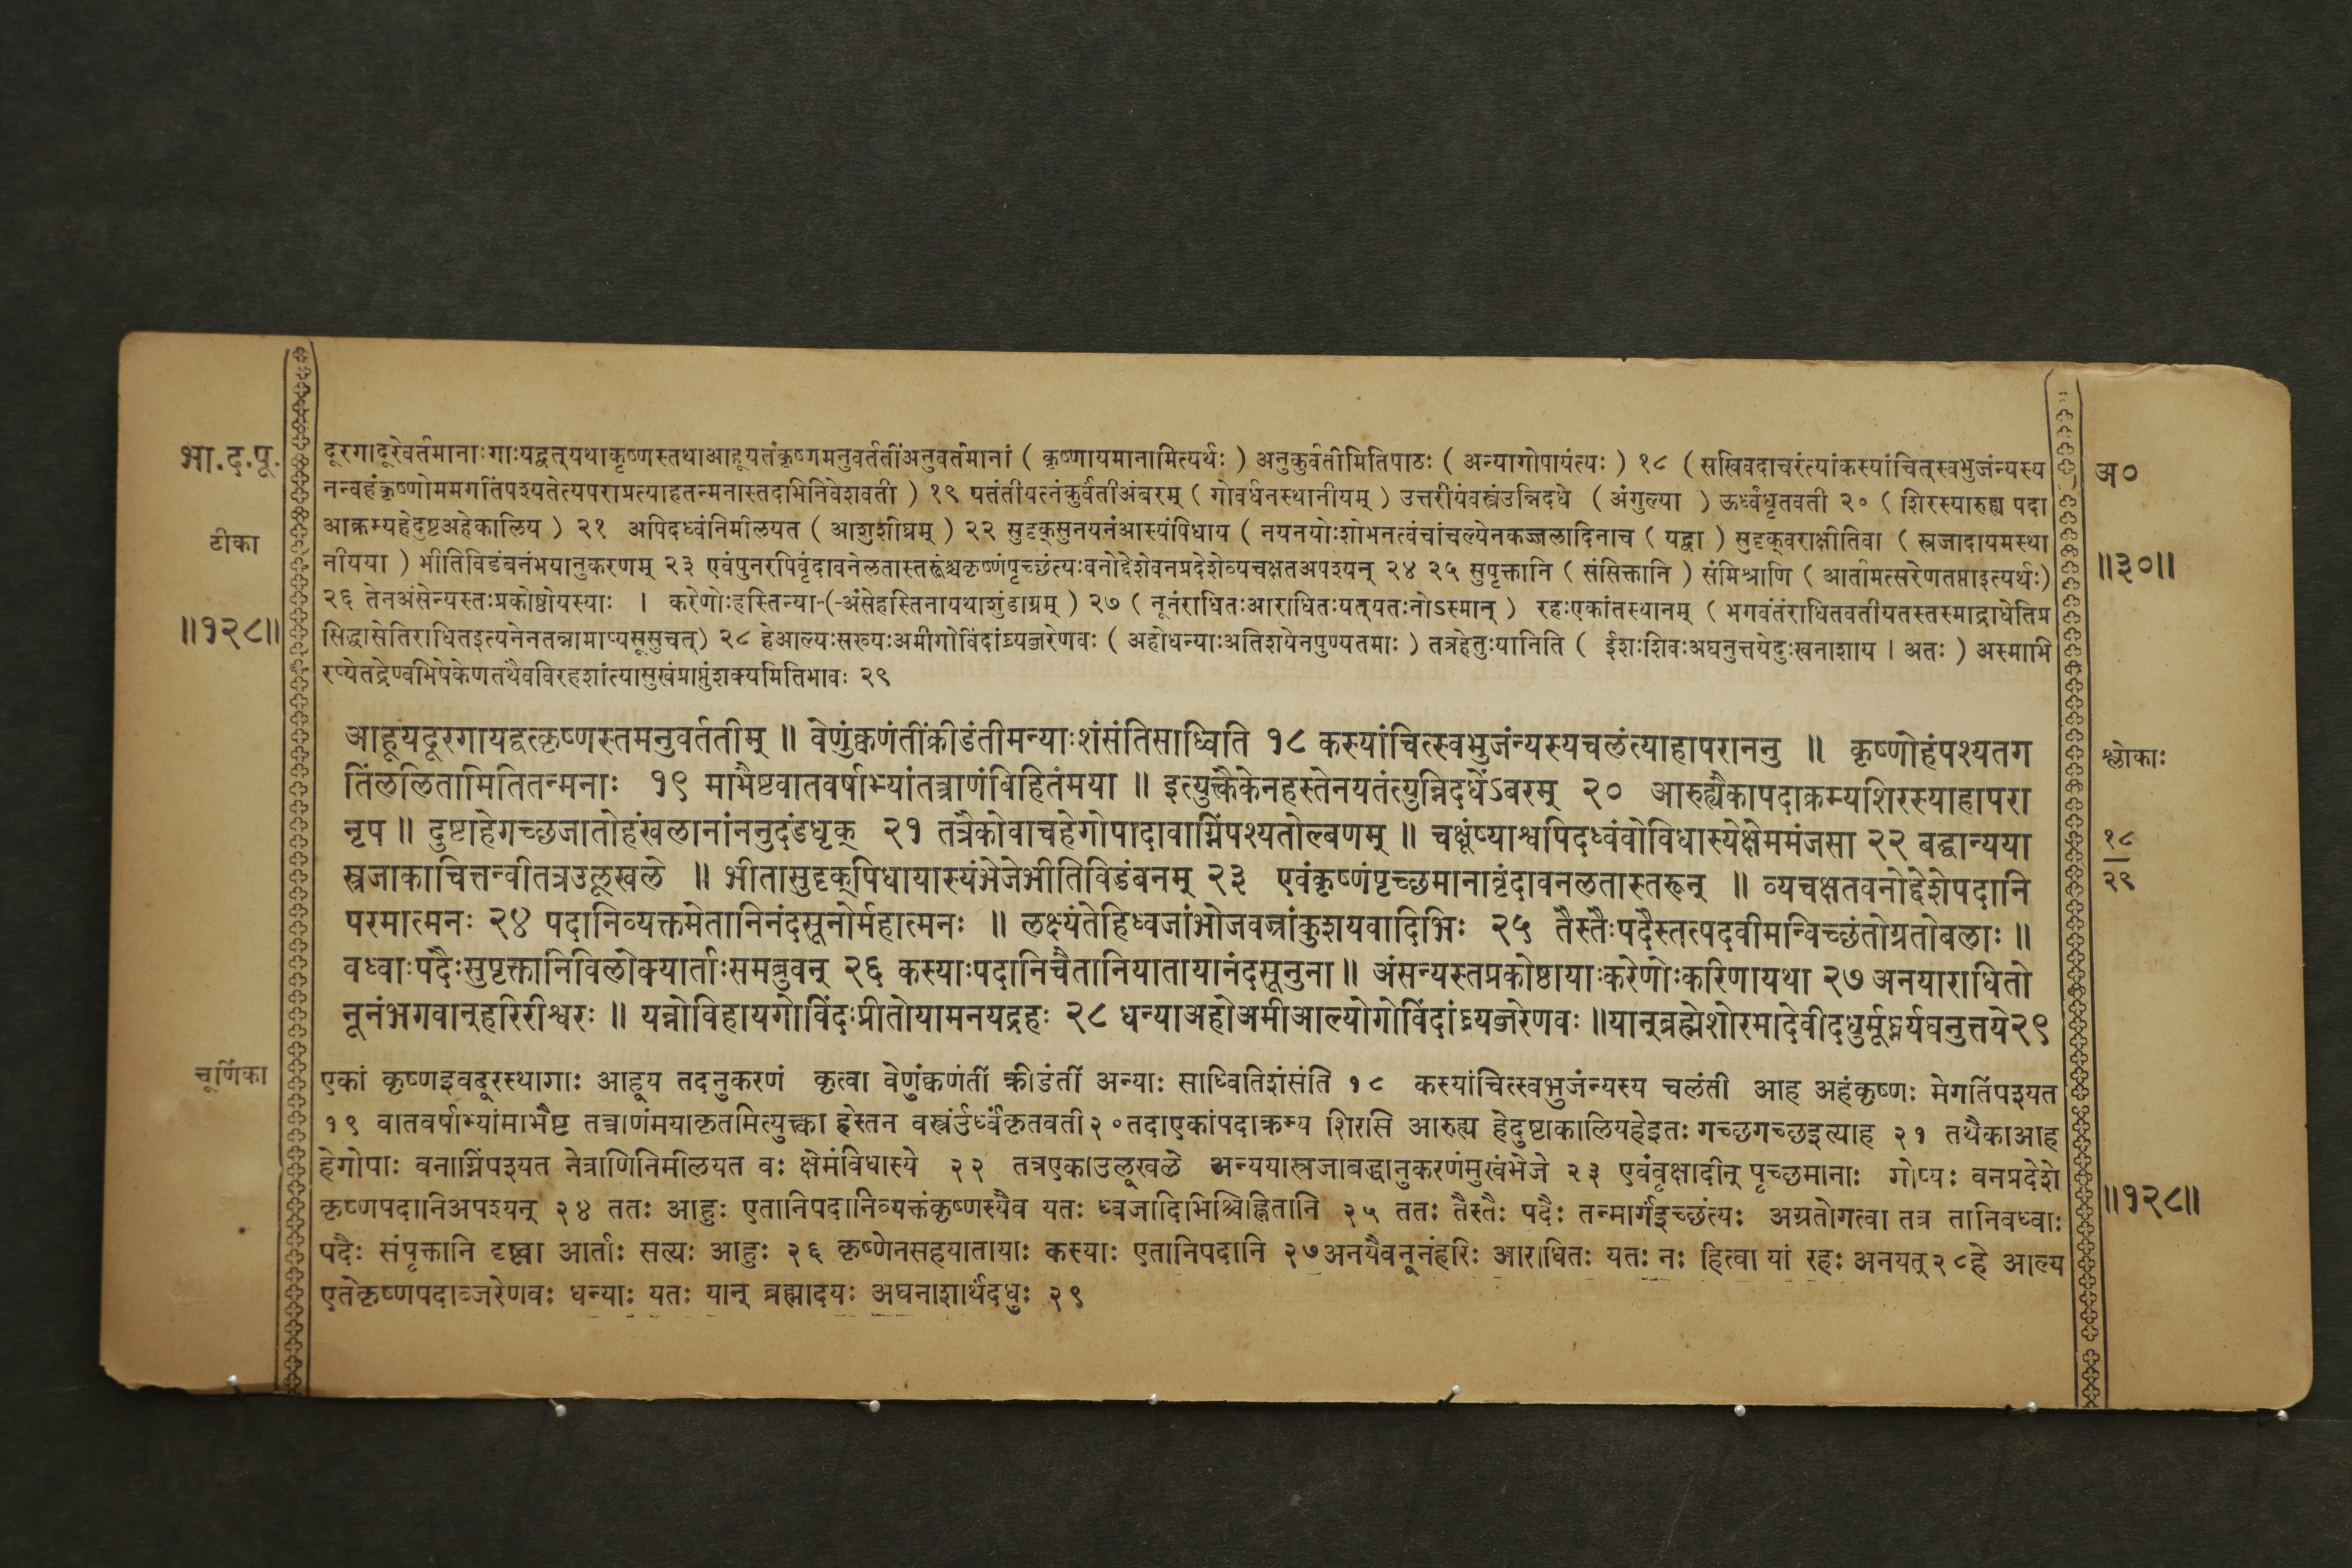 भा.द.पू.
टीका
॥१२८॥
दूरगादूरेवर्तमानाःगाःयद्वत्‌यथाकृष्णस्तथाआहूयतंकृष्णमनुवर्ततींअनुवर्तमानां ( कृष्णायमानामित्यर्थः ) अनुकुर्वतीमितिपाठः ( अन्यागोपायंत्यः ) १८ ( सखिवदाचरंत्यांकस्यांचित्‌स्वभुजंन्यस्य
नन्वहंकृष्णोममगतिंपश्यतेत्यपराप्रत्याहतन्मनास्तदभिनिवेशवती ) १९ यतंतीयत्नंकुर्वतीअंबरम् ( गोवर्धनस्थानीयम् ) उत्तरीयंवस्त्रंउन्निदधे ( अंगुल्या ) ऊर्ध्वंधृतवती २० ( शिरस्यारुह्य पदा
आक्रम्यहेदुष्टअहेकालिय ) २१ अपिदध्वंनिमीलयत ( आशुशीघ्रम् ) २२ सुदृक्‌सुनयनंआस्यंपिधाय ( नयनयोःशोभनत्वंचांचल्येनकज्जलादिनाच ( यद्वा ) सुदृक्‌वराक्षीतिवा ( स्रजादायमस्था
नीयया ) भीतिविडंबनंभयानुकरणम् २३ एवंपुनरपिवृंदावनेलतास्तरूंश्चकृष्णंपृच्छंत्यःवनोद्देशेवनप्रदेशेव्यचक्षतअपश्यन् २४ २५ सुपृक्तानि ( संसिक्तानि ) संमिश्राणि ( आर्तामत्सरेणतप्ताइत्यर्थः)
२६ तेनअंसेन्यस्तःप्रकोष्ठोयस्याः । करेणोःहस्तिन्या-(-अंसेहस्तिनायथाशुंडाग्रम् ) २७ ( नूनंराधितःआराधितःयत्‌यतःनोऽस्मान् ) रहःएकांतस्थानम् ( भगवंतंराधितवतीयतस्तस्माद्राधेतिप्र
सिद्धासेतिराधितइत्यनेनतन्नामाप्यसूसुचत्) २८ हेआल्यःसख्यःअमीगोविंदांघ्र्यब्जरेणवः ( अहोधन्याःअतिशयेनपुण्यतमाः ) तत्रहेतुःयानिति ( ईशःशिवःअघनुत्तयेदुःखनाशाय । अतः ) अस्माभि
रप्येतद्रेण्वभिषेकेणतथैवविरहशांत्यासुखंप्राप्तुंशक्यमितिभावः २९
आहूयदूरगायद्वत्कृष्णस्तमनुवर्ततीम् ॥ वेणुंक्वणंतींक्रीडंतीमन्याःशंसंतिसाध्विति १८ कस्यांचित्स्वभुजंन्यस्यचलंत्याहापराननु ॥ कृष्णोहंपश्यतग
तिंललितामितितन्मनाः १९ माभैष्टवातवर्षाभ्यांतत्त्राणंविहितंमया ॥ इत्युक्त्वैकेनहस्तेनयतंत्युन्निदधेंऽबरम् २० आरुह्यैकापदाक्रम्यशिरस्याहापरा
नृप ॥ दुष्टाहेगच्छजातोहंखलानांननुदंडधृक् २१ तत्रैकोवाचहेगोपादावाग्निंपश्यतोल्बणम् ॥ चक्षूंष्याश्वपिदध्वंवोविधास्येक्षेममंजसा २२ बद्धान्यया
स्रजाकाचित्तन्वीतत्रउलूखले ॥ भीतासुदृक्‌पिधायास्यंभेजेभीतिविडंबनम् २३ एवंकृष्णंपृच्छमानावृंदावनलतास्तरून् ॥ व्यचक्षतवनोद्देशेपदानि
परमात्मनः २४ पदानिव्यक्तमेतानिनंदसूनोर्महात्मनः ॥ लक्ष्यंतेहिध्वजांभोजवज्रांकुशयवादिभिः २५ तैस्तैःपदैस्तत्पदवीमन्विच्छंतोग्रतोबलाः ॥
वध्वाःपदैःसुपृक्तानिविलोक्यार्ताःसमब्रुवन् २६ कस्याःपदानिचैतानियातायानंदसूनुना ॥ अंसन्यस्तप्रकोष्ठायाःकरेणोःकरिणायथा २७ अनयाराधितो
नूनंभगवान्‌हरिरीश्वरः ॥ यन्नोविहायगोविंदःप्रीतोयामनयद्रहः २८ धन्याअहोअमीआल्योगोविंदांघ्र्यब्जरेणवः ॥यान्‌ब्रह्मेशोरमादेवीदधुर्मूर्ध्न्यघनुत्तये२९
चूर्णिका
एकां कृष्णइवदूरस्थागाः आहूय तदनुकरणं कृत्वा वेणुंक्वणंतीं क्रीडंतीं अन्याः साध्वितिशंसंति १८ कस्यांचित्स्वभुजंन्यस्य चलंती आह अहंकृष्णः मेगतिंपश्यत
१९ वातवर्षाभ्यांमाभैष्ट तत्त्राणंमयाकृतमित्युक्त्वा हस्तेन वस्त्रंउर्ध्वंकृतवती२०तदाएकांपदाक्रम्य शिरसि आरुह्य हेदुष्टाकालियहेइतः गच्छगच्छइत्याह २१ तथैकाआह
हेगोपाः वनाग्निंपश्यत नेत्राणिनिमीलयत वः क्षेमंविधास्ये २२ तत्रएकाउलूखळे अन्ययास्रजाबद्धानुकरणंमुखंभेजे २३ एवंवृक्षादीन् पृच्छमानाः गोप्यः वनप्रदेशे
कृष्णपदानिअपश्यन् २४ ततः आहुः एतानिपदानिव्यक्तंकृष्णस्यैव यतः ध्वजादिभिश्चिह्नितानि २५ ततः तैस्तैः पदैः तन्मार्गंइच्छंत्यः अग्रतोगत्वा तत्र तानिवध्वाः
पदैः संपृक्तानि दृष्ट्वा आर्ताः सत्यः आहुः २६ कृष्णेनसहयातायाः कस्याः एतानिपदानि २७अनयैवनूनंहरिः आराधितः यतः नः हित्वा यां रहः अनयत्२८हे आल्य
एतेकृष्णपदाब्जरेणवः धन्याः यतः यान् ब्रह्मादयः अघनाशार्थंदधुः २९
अ०
॥३०॥
श्लोकाः
१८
२९
॥१२८॥